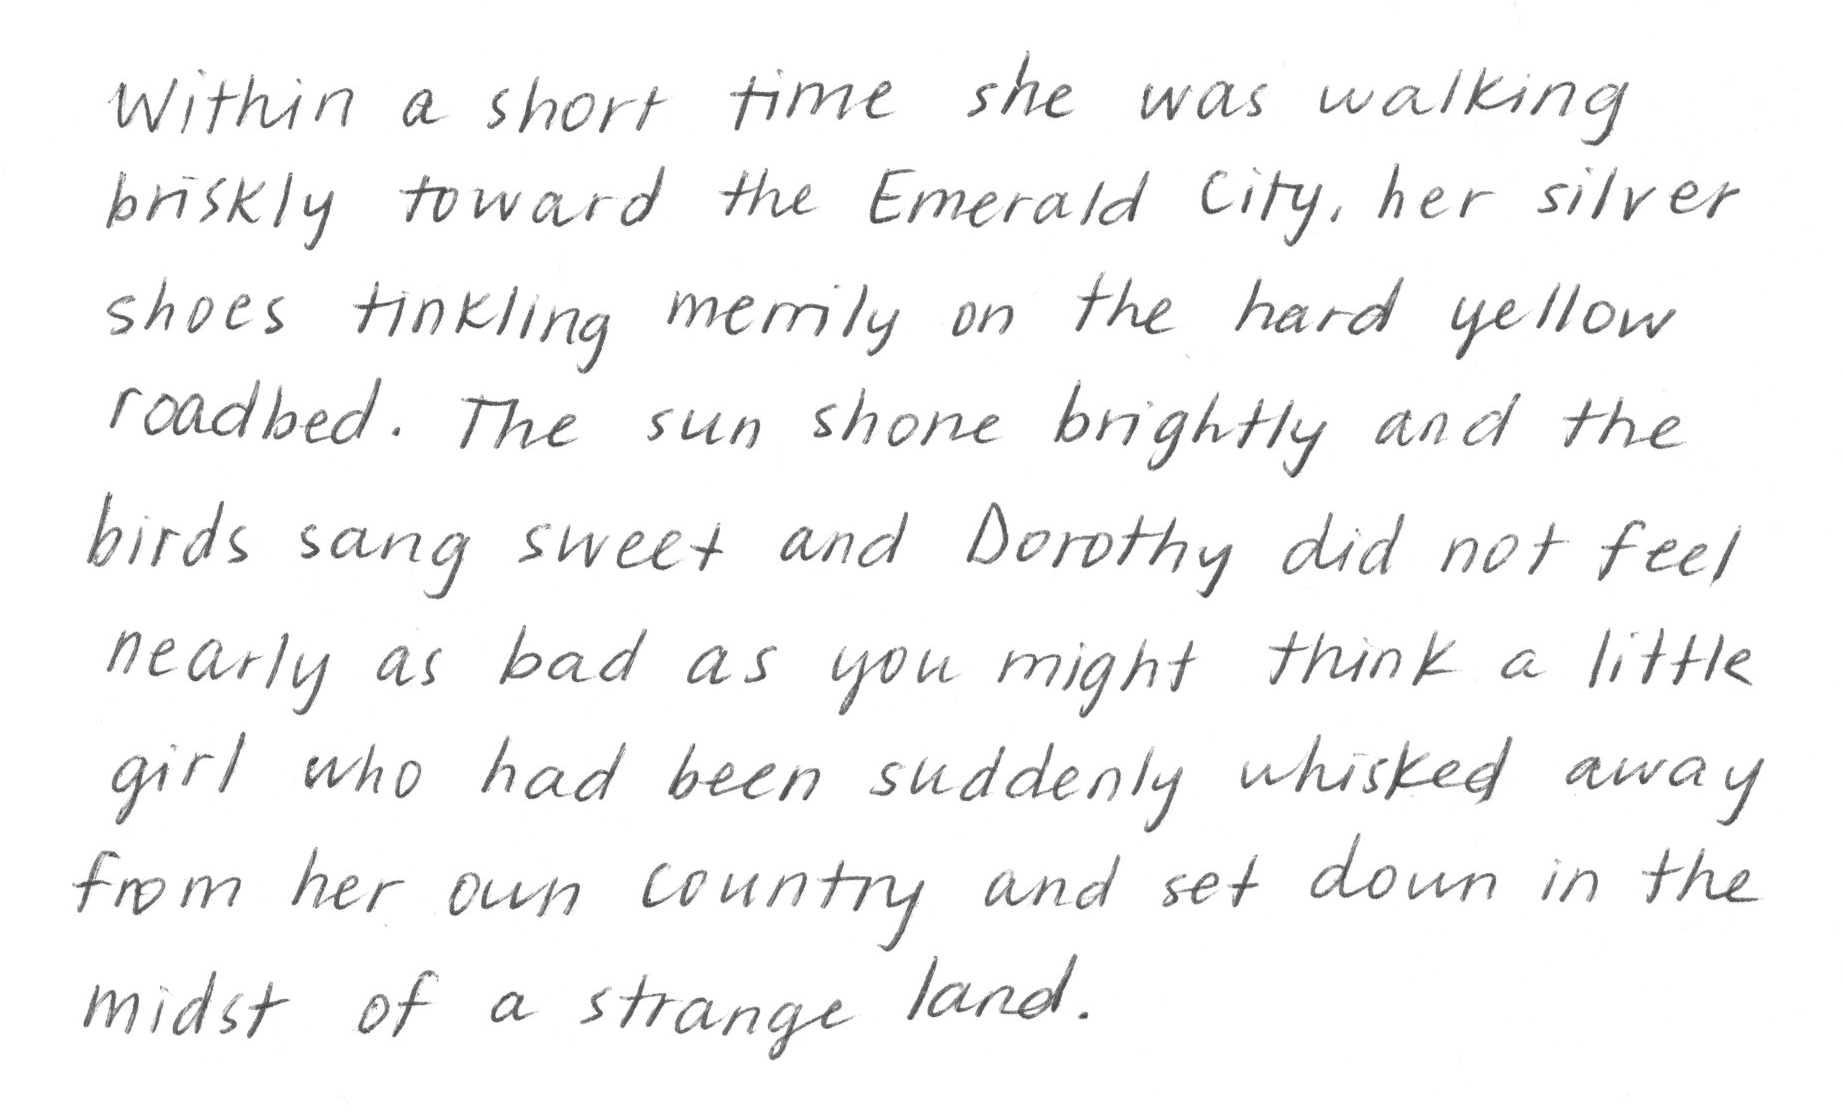 Within a short time she was walking
briskly toward the Emerald City, her silver
shoes tinkling merrily on the hard yellow
roadbed. The sun shone brightly and the
birds sang sweet and Dorothy did not feel
nearly as bad as you might think a little
girl who had been suddenly whisked away
from her own country and set down in the
midst of a strange land.